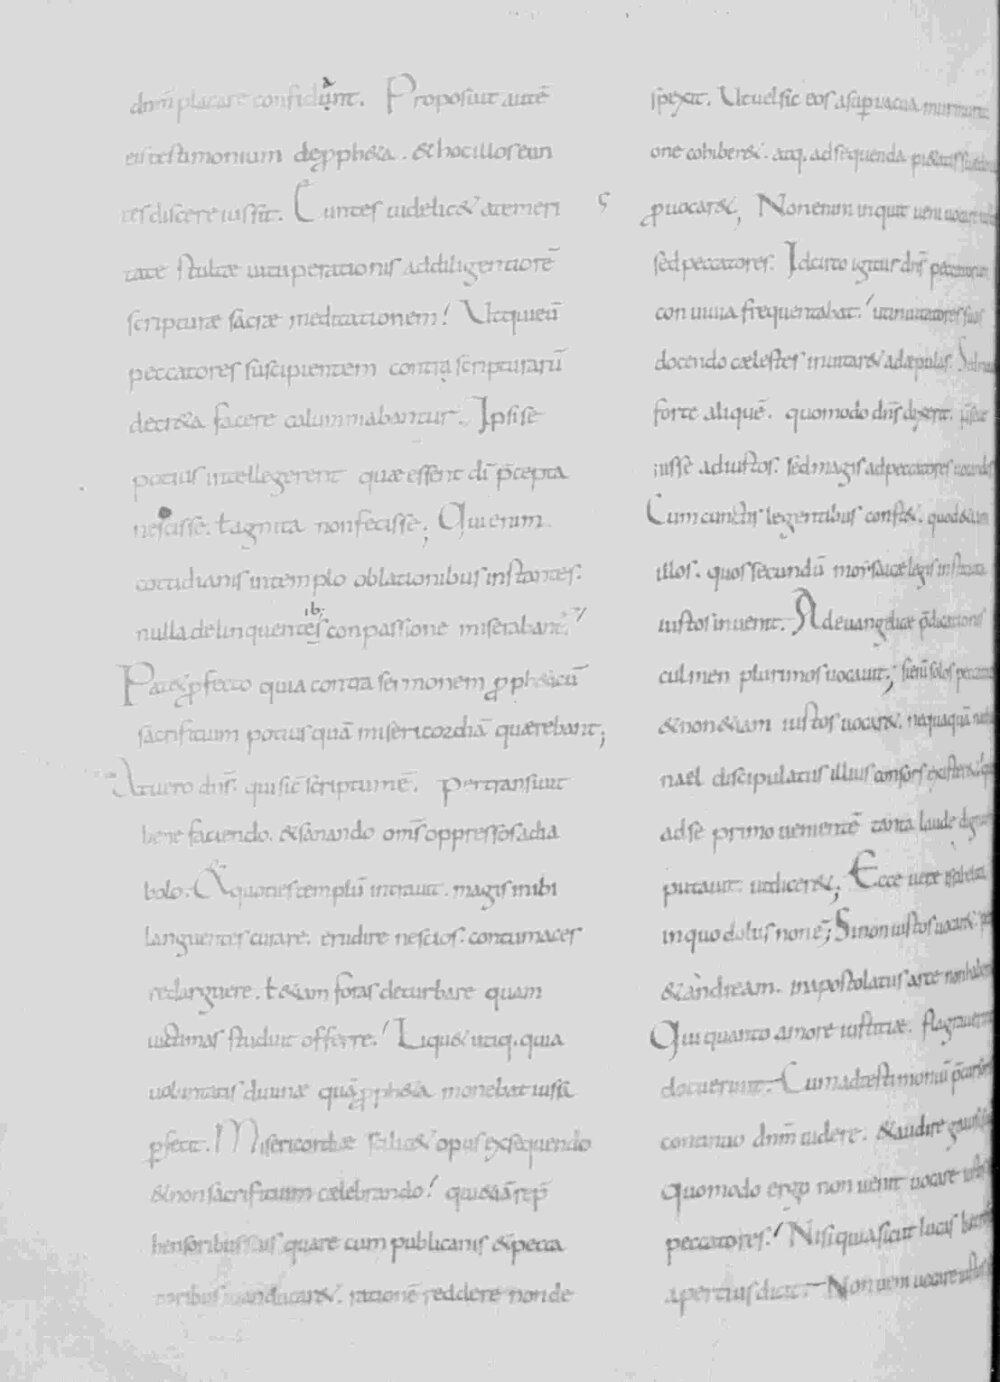 dnm̄ placare confidunt. Proposuit autē
eis testimonium de ꝓph&a. & hoc illos eun
tes discere iussit. Euntes uidelic& a temeri
tate stultae uituperationis ad diligentiorē
scripturae sacrae meditationem! Ut qui eū
peccatores suscipientem contra scripturarū
decr&a facere calumniabantur. Ipsi se
potius intellegerent quae essent dī p̄cepta
nescisse. ł agnita non fecisse; Qui enim
cotidianis in templo oblationibus instantes.
nulla delinquentes conpassione miserabant.
Pat& ꝓfecto quia contra sermonem ꝓph&icū
sacrificium potius quā misericordiā quaerebant;
At uero dns̄. qui sic̄ scriptum ē. pertransiuit
bene faciendo. & sanando oms̄ oppressos a dia
bolo. Quotiens templū intrauit. magis inibi
languentes curare. erudire nescios. contumaces
redarguere. ł &iam foras deturbare quam
uictimas studuit offerre! Liqu& utiq. quia
uoluntatis diuinae quā ꝓph&a monebat iussa
ꝑfecit. Misericordiae scilic& opus exsequendo
& non sacrificium caelebrando! qui &iā rep̄
hensoribus suis quare cum publicanis & pecca
toribus manducar&. rationē reddere non de
spexit. Ut uel sic eos a suꝑuacua murmurati
one cohiber&. atq. ad sequenda pi&atis
ꝓuocar&; Non enim inquit ueni uocare
sed peccatores. Idcirco igitur dns̄ peccatorum
conuiuia frequentabat! ut inuitatores suos
docendo caelestes inuitar& ad aepulas.
forte aliquē. quomodo dns̄ dixerit.
isse ad iustos. sed magis ad peccatores uocandos
Cum cunctis legentibus const&. quod &iam
illos. quos secundū mosaicae legis
iustos inuenit. Ad euangelicae p̄dicationis
culmen plurimos uocauit; si enī solos
& non &iam iustos uocar&. nequaquā
nael discipulatus illius consors exister&
ad se primo uenientē tanta laude
putauit. ut dicer&; Ecce uere
in quo dolus non ē; Si non iustos uocar&.
& andream. in apostolatus arce non
Qui quanto amore iustitiae. flagrauerint
docuerunt. Cum ad testimoniū
continuo dnm̄ uidere. & audire
Quomodo ergo non uenit uocare
peccatores! Nisi quia sicut lucas
apertius dicit. Non ueni uocare